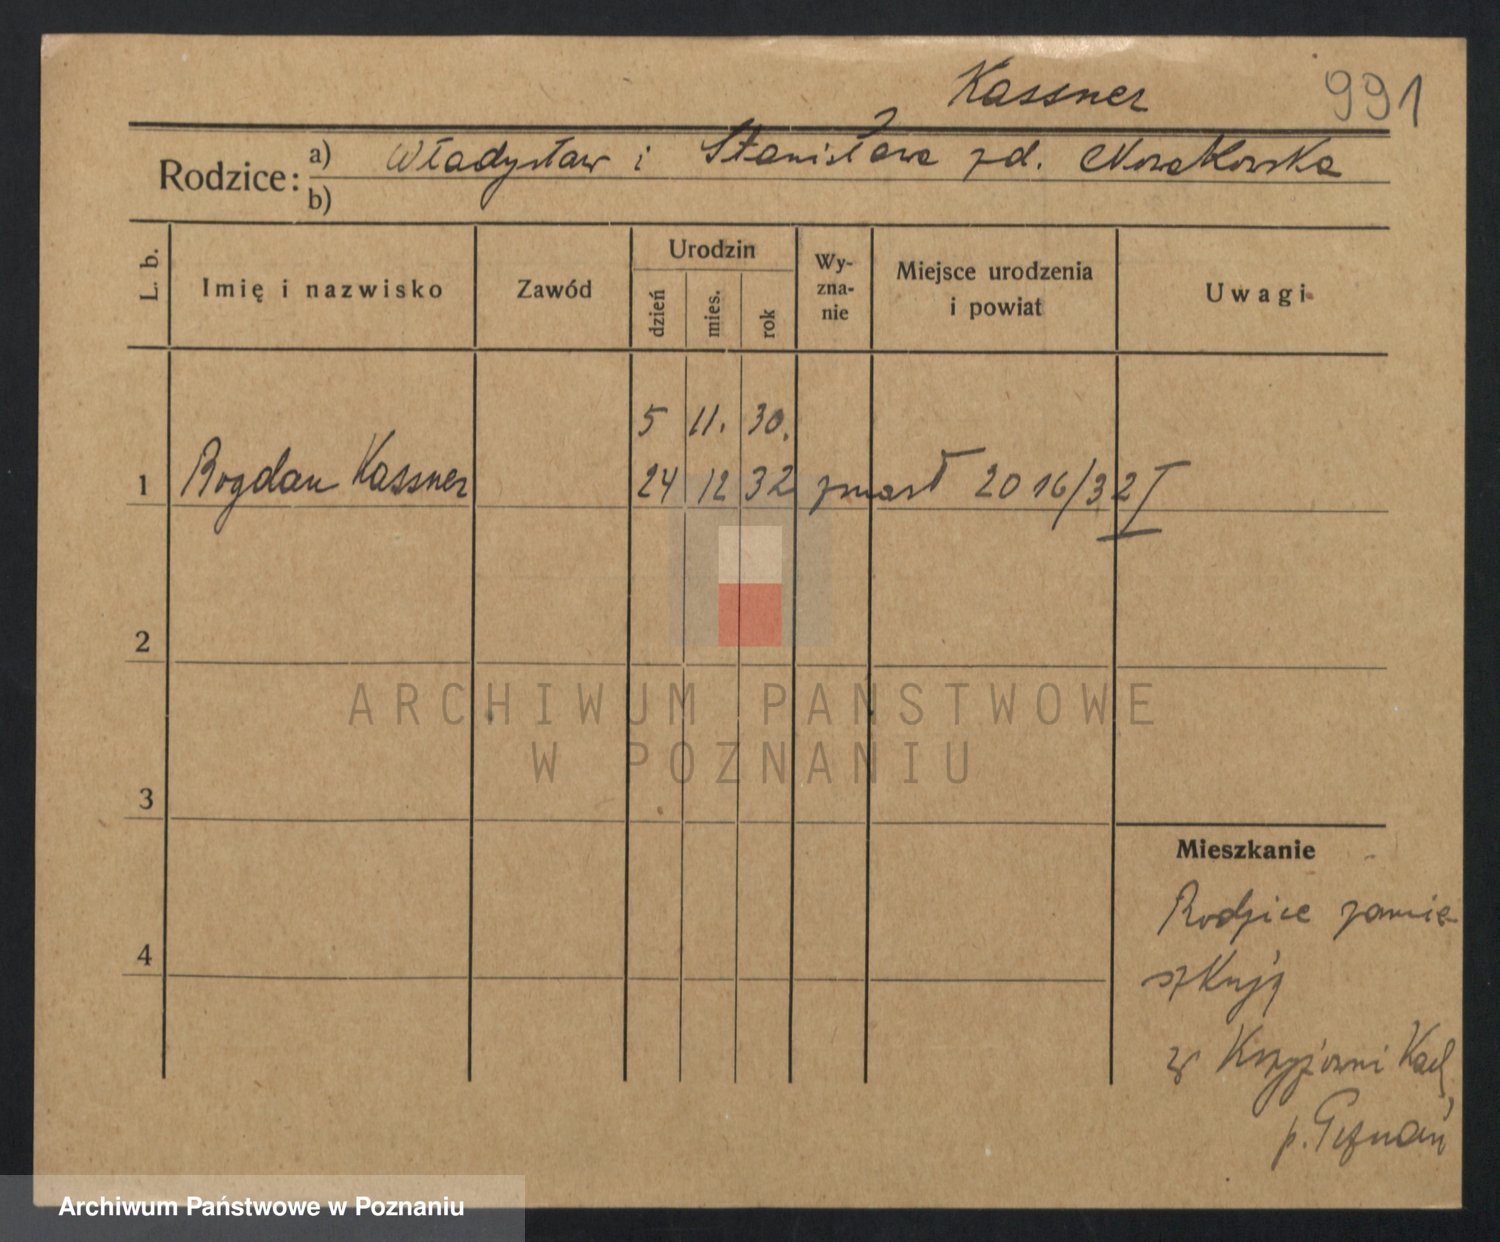 Kassner 991
Rodzice: a) Władysław i Stanisława zd. Nowakowska
b)
L. b.
Imię i nazwisko
Zawód
Urodzin
dzień
mies.
rok
Wy-
zna-
nie
Miejsce urodzenia
i powiat
Uwagi
5 11. 30.
1 Bogdan Kassner 24 12 32 zmarł 2016/32 I
2
3
4
ARCHIWUM PAŃSTWOWE
W POZNANIU
Mieszkanie
Rodzice zamie
szkują
w
p. Poznań
Archiwum Państwowe w Poznaniu